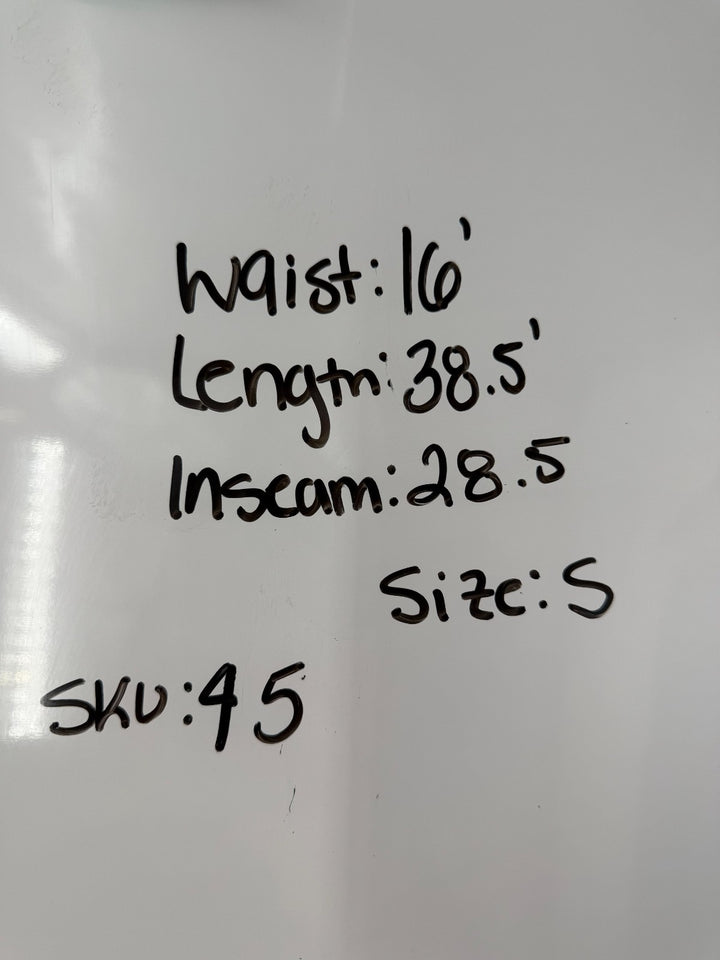 Waist: 16'
Length: 38.5'
Inseam: 28.5
Size: S
SKU: 45